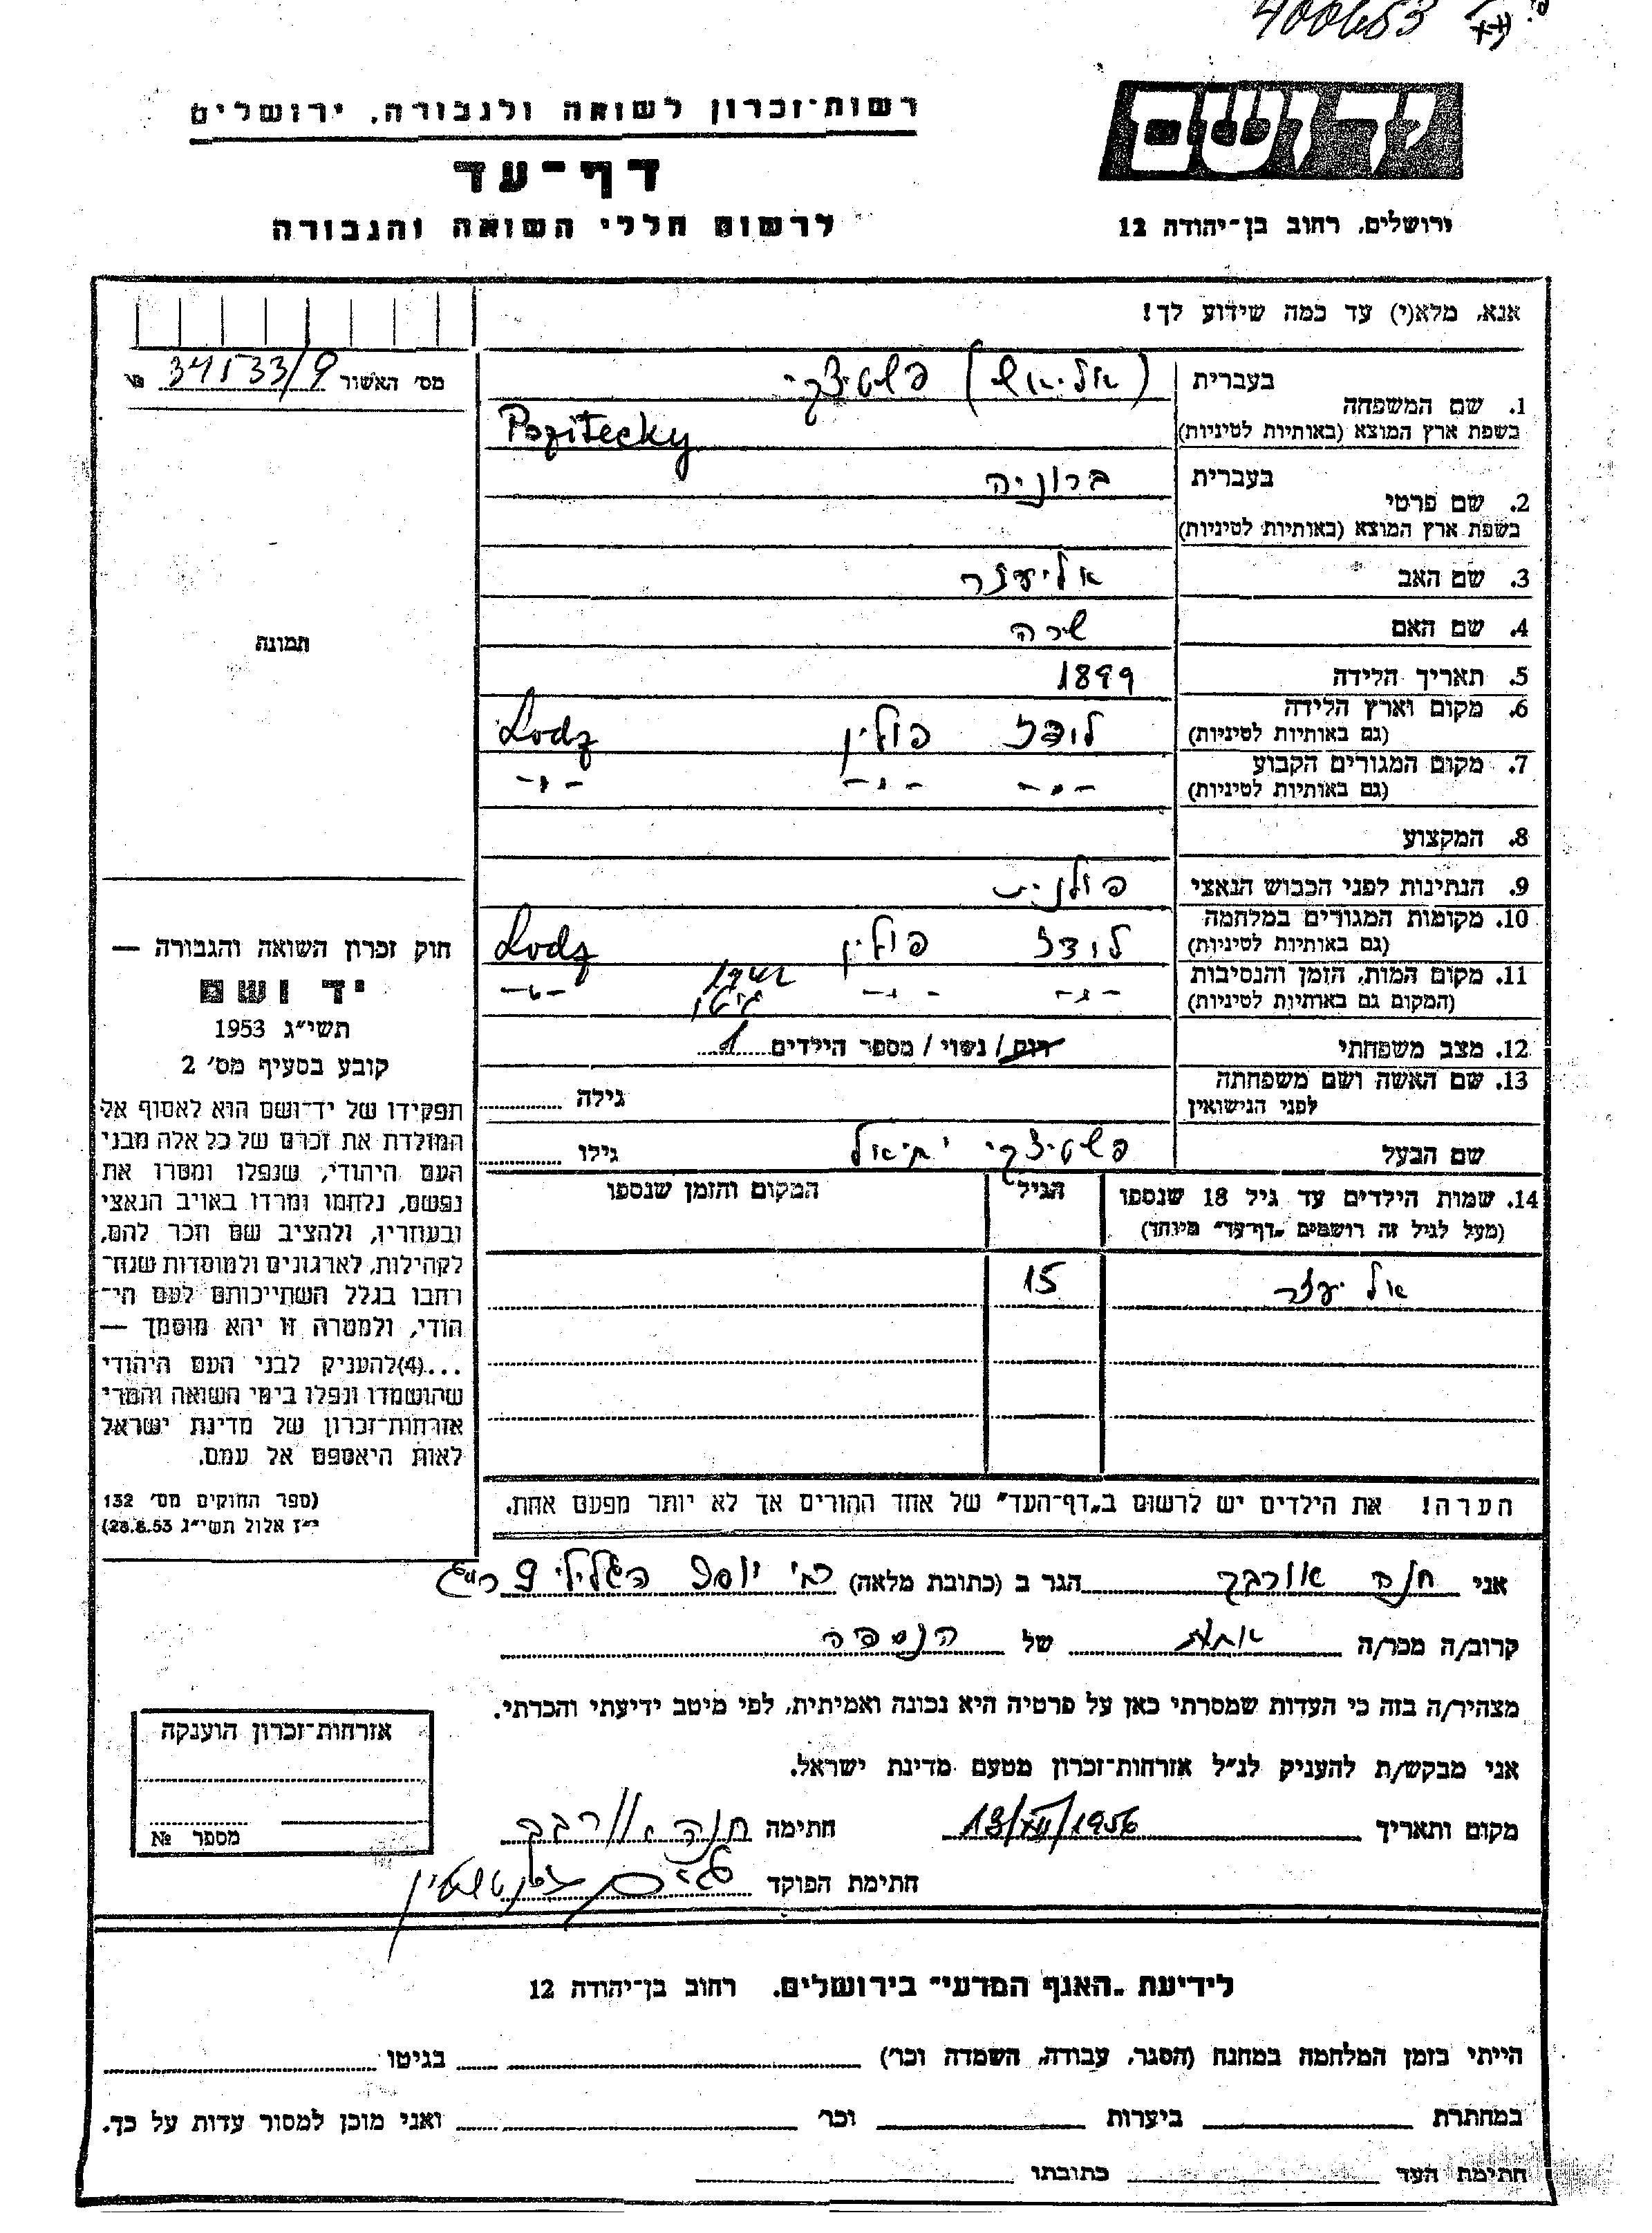 400653
רשות-זכרון לשואה ולגבורה, ירושלים
דף-עד
לרשום חללי השואה והגבורה
יד ושם
ירושלים, רחוב בן-יהודה 12
אנא, מלא(י) עד כמה שידוע לך!
מס׳ האשור 34533/9 №
תמונה
חוק זכרון השואה והגבורה —
יד ושם
תשי״ג 1953
קובע בסעיף מס׳ 2
תפקידו של יד-ושם הוא לאסוף אל
המולדת את זכרם של כל אלה מבני
העם היהודי, שנפלו ומסרו את
נפשם, נלחמו ומרדו באויב הנאצי
ובעוזריו, ולהציב שם וזכר להם,
לקהילות, לארגונים ולמוסדות שנח-
רבו בגלל השתייכותם לעם הי-
הודי, ולמטרה זו יהא מוסמך —
...(4) להעניק לבני העם היהודי
שהושמדו ונפלו בימי השואה והמרי
אזרחות-זכרון של מדינת ישראל
לאות היאספם אל עמם.
(ספר החוקים מס׳ 132
י״ז אלול תשי״ג 28.8.53)
1. שם המשפחה בעברית פשטיצקי
בשפת ארץ המוצא (באותיות לטיניות) Pozitecky
2. שם פרטי בעברית ברוניה
בשפת ארץ המוצא (באותיות לטיניות)
3. שם האב אליעזר
4. שם האם שרה
5. תאריך הלידה 1899
6. מקום וארץ הלידה לודז פולין Lodz
(גם באותיות לטיניות)
7. מקום המגורים הקבוע -״- -״- -״-
(גם באותיות לטיניות)
8. המקצוע
9. הנתינות לפני הכבוש הנאצי פולנית
10. מקומות המגורים במלחמה לודז פולין Lodz
(גם באותיות לטיניות)
11. מקום המות, הזמן והנסיבות -״- -״- גיטו -״-
(המקום גם באותיות לטיניות)
12. מצב משפחתי רווק / נשוי / מספר הילדים 1
13. שם האשה ושם משפחתה גילה
לפני הנישואין
שם הבעל פשטיצקי יחיאל גילו
14. שמות הילדים עד גיל 18 שנספו הגיל המקום והזמן שנספו
(מעל לגיל זה רושמים „דף-עד״ מיוחד)
אליעזר 15
הערה! את הילדים יש לרשום ב„דף-העד״ של אחד ההורים אך לא יותר מפעם אחת.
אני חנה אורבך הגר ב (כתובת מלאה) רח׳ יוסף הגלילי 9 ר״ג
קרוב/ה מכר/ה אחות של הנספה
מצהיר/ה בזה כי העדות שמסרתי כאן על פרטיה היא נכונה ואמיתית, לפי מיטב ידיעתי והכרתי.
אני מבקש/ת להעניק לנ״ל אזרחות-זכרון מטעם מדינת ישראל.
מקום ותאריך 13/XII/1956 חתימה חנה אורבך
חתימת הפוקד
אזרחות-זכרון הוענקה
מספר №
לידיעת „האגף המדעי״ בירושלים, רחוב בן-יהודה 12
הייתי בזמן המלחמה במחנה (הסגר, עבודה, השמדה וכר׳) בגיטו
במחתרת ביערות וכר׳ ואני מוכן למסור עדות על כך.
חתימת העד כתובתו